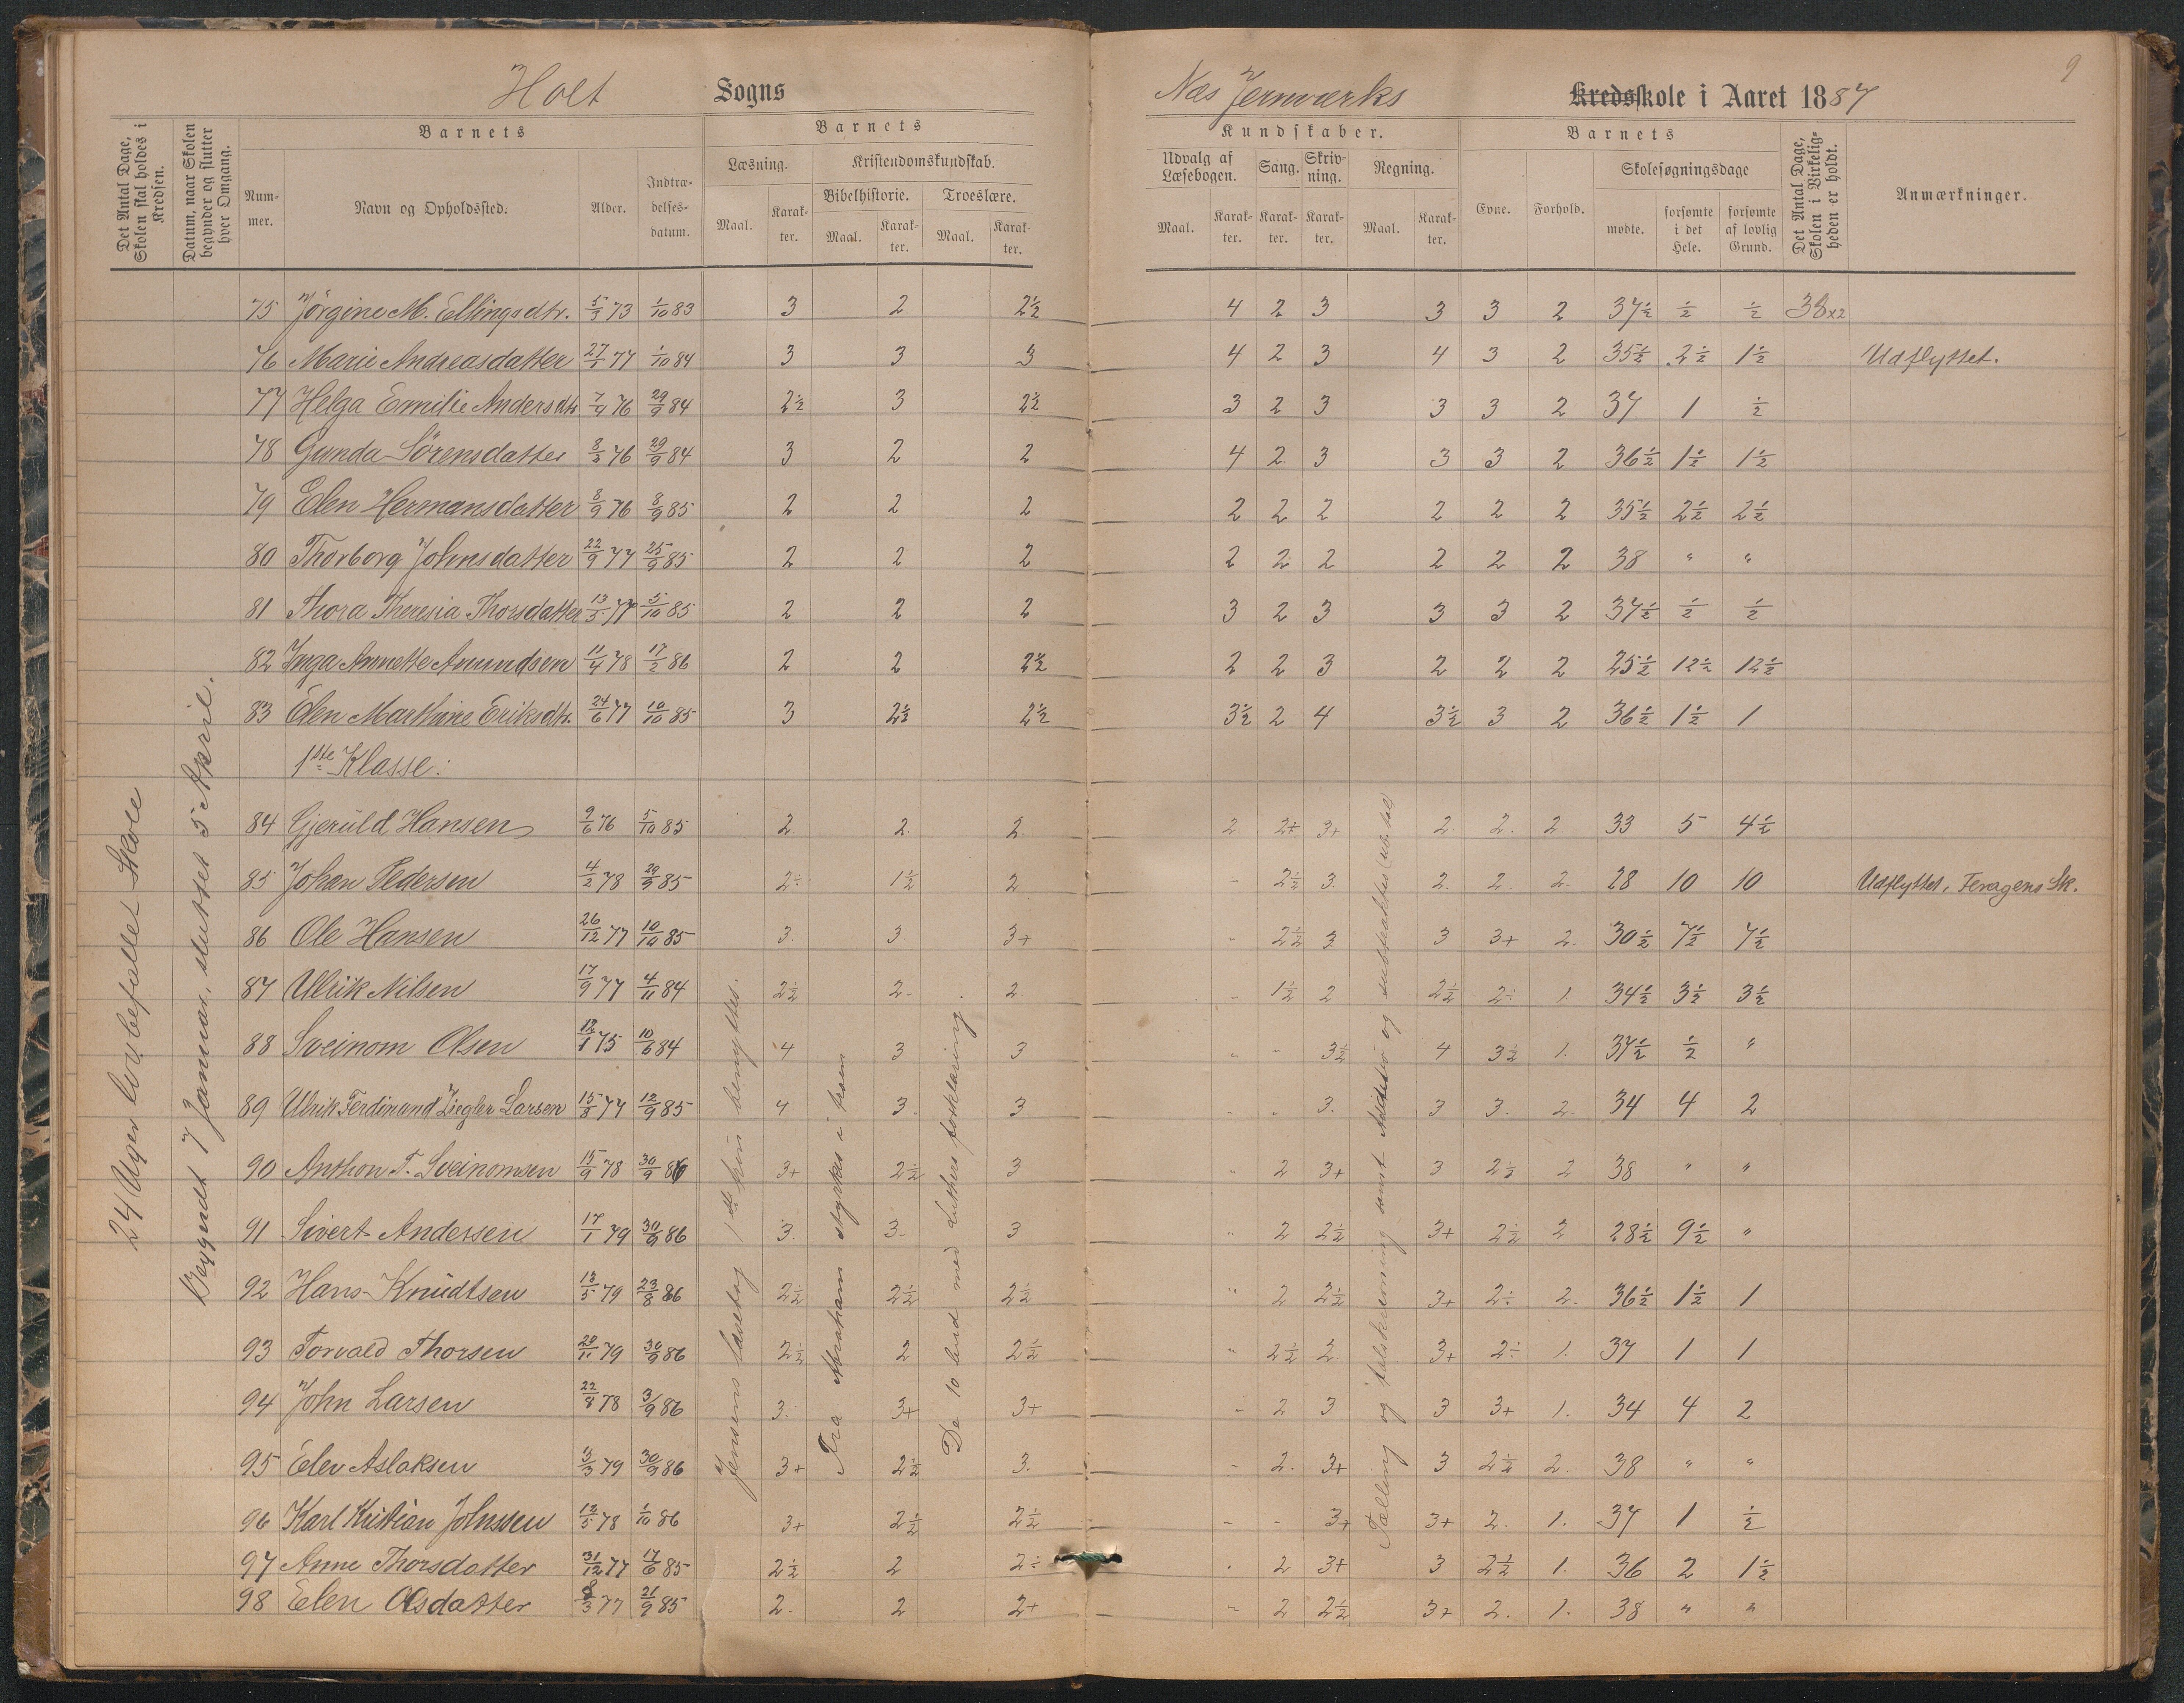 9
Holt Sogns Næs Jernværks Kredsskole i Aaret 1887
Det Antal Dage, Skolen skal holdes i Kredsen.
Datum, naar Skolen begynder og slutter hver Omgang.
Barnets
Nummer.
Navn og Opholdssted.
Alder.
Indtrædelsesdatum.
Barnets
Læsning.
Maal.
Karakter.
Kristendomskundskab.
Bibelhistorie.
Maal.
Karakter.
Troeslære.
Maal.
Karakter.
Kundskaber.
Udvalg af Læsebogen.
Maal.
Karakter.
Sang.
Karakter.
Skrivning.
Karakter.
Regning.
Maal.
Karakter.
Barnets
Evne.
Forhold.
Skolesøgningsdage
mødte.
forsømte i det Hele.
forsømte af lovlig Grund.
Det Antal Dage, Skolen i Virkeligheden er holdt.
Anmærkninger.
24 Uger lovbefallet Skole
Begyndt 7 Januar, sluttet 5 April.
75 Jörgine M. Ellingsdtr. 5/3 73 1/10 83 3 2 2½ 4 2 3 3 3 2 37½ ½ ½ 38x2
76 Marie Andreasdatter 27/5 77 1/10 84 3 3 3 4 2 3 4 3 2 35½ 2½ 1½ Udflyttet.
77 Helga Emilie Andersdtr 7/4 76 29/9 84 2½ 3 2½ 3 2 3 3 3 2 37 1 ½
78 Gunda Sörensdatter 8/3 76 29/9 84 3 2 2 4 2 3 3 3 2 36½ 1½ 1½
79 Elen Hermansdatter 8/9 76 8/9 85 2 2 2 2 2 2 2 2 2 35½ 2½ 2½
80 Thorborg Johnsdatter 22/9 77 25/9 85 2 2 2 2 2 2 2 2 2 38 " "
81 Thora Theresia Thorsdatter 13/5 77 5/10 85 2 2 2 3 2 3 3 3 2 37½ ½ ½
82 Inga Annette Amundsen 11/4 78 17/2 86 2 2 2½ 2 2 3 2 2 2 25½ 12½ 12½
83 Elen Marthine Eriksdtr. 24/6 77 10/10 85 3 2½ 2½ 3½ 2 4 3½ 3 2 36½ 1½ 1
1ste Klasse:
84 Gjeruld Hansen 9/6 76 5/10 85 2. 2. 2. 2. 2+ 3+ 2. 2. 2 33 5 4½
85 Johan Pedersen 4/2 78 29/9 85 2÷ 1½ 2 - 2½ 3. 2. 2. 2. 28 10 10 Udflyttet, Feragens Sk.
86 Ole Hansen 26/12 77 10/10 85 3. 3 3+ - 2½ 3 3 3+ 2. 30½ 7½ 7½
87 Ulrik Nilsen 17/9 77 4/11 84 2½ 2- 2 - 1½ 2 2½ 2÷ 1. 34½ 3½ 3½
88 Sveinom Olsen 12/1 75 10/6 84 4 3 3 - - 3½ 4 3½ 1. 37½ ½ "
89 Ulrik Ferdinand Ziegler Larsen 15/8 77 12/9 85 4 3. 3 - - 3. 3 3. 2. 34 4 2
90 Anthon T. Sveinomsen 15/9 78 30/9 86 3+ 2½ 3 - 2 3+ 3 2½ 2 38 " "
91 Sivert Andersen 17/1 79 30/9 86 3. 3- 3 " 2 2½ 3+ 2½ 2 28½ 9½ "
92 Hans Knudtsen 13/5 79 23/8 86 2½ 2½ 2½ " 2 2½ 3+ 2÷ 2. 36½ 1½ 1
93 Torvald Thorsen 20/11 79 30/9 86 2½ 2 2½ " 2½ 2. 3+ 2÷ 1. 37 1 1
94 John Larsen 22/8 78 3/9 86 3. 3+ 3+ - 2 3 3 3+ 1. 34 4 2
95 Elev Aslaksen 13/3 79 30/9 86 3+ 2½ 3. - 2. 3+ 3 2½ 2. 38 " "
96 Karl Kristian Johnssen 12/5 78 1/10 86 3+ 2½ 2½ - - 3+ 3+ 2. 1. 37 1 ½
97 Anne Thorsdatter 31/12 77 17/6 85 2½ 2 2÷ - 2 3+ 3 2½ 1. 36 2 1½
98 Elen Olsdatter 8/3 77 21/9 85 2. 2 2+ - 2 2½ 3+ 2. 1. 38 " "
Jensens læsebog 1ste trin benyttes.
Fra Abraham stykker i
De 10 bud med Luthers forklaring
Tælling og talskrivning samt Addition og